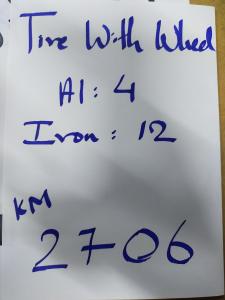 Tire With Wheel
Al: 4
Iron: 12
KM
2706